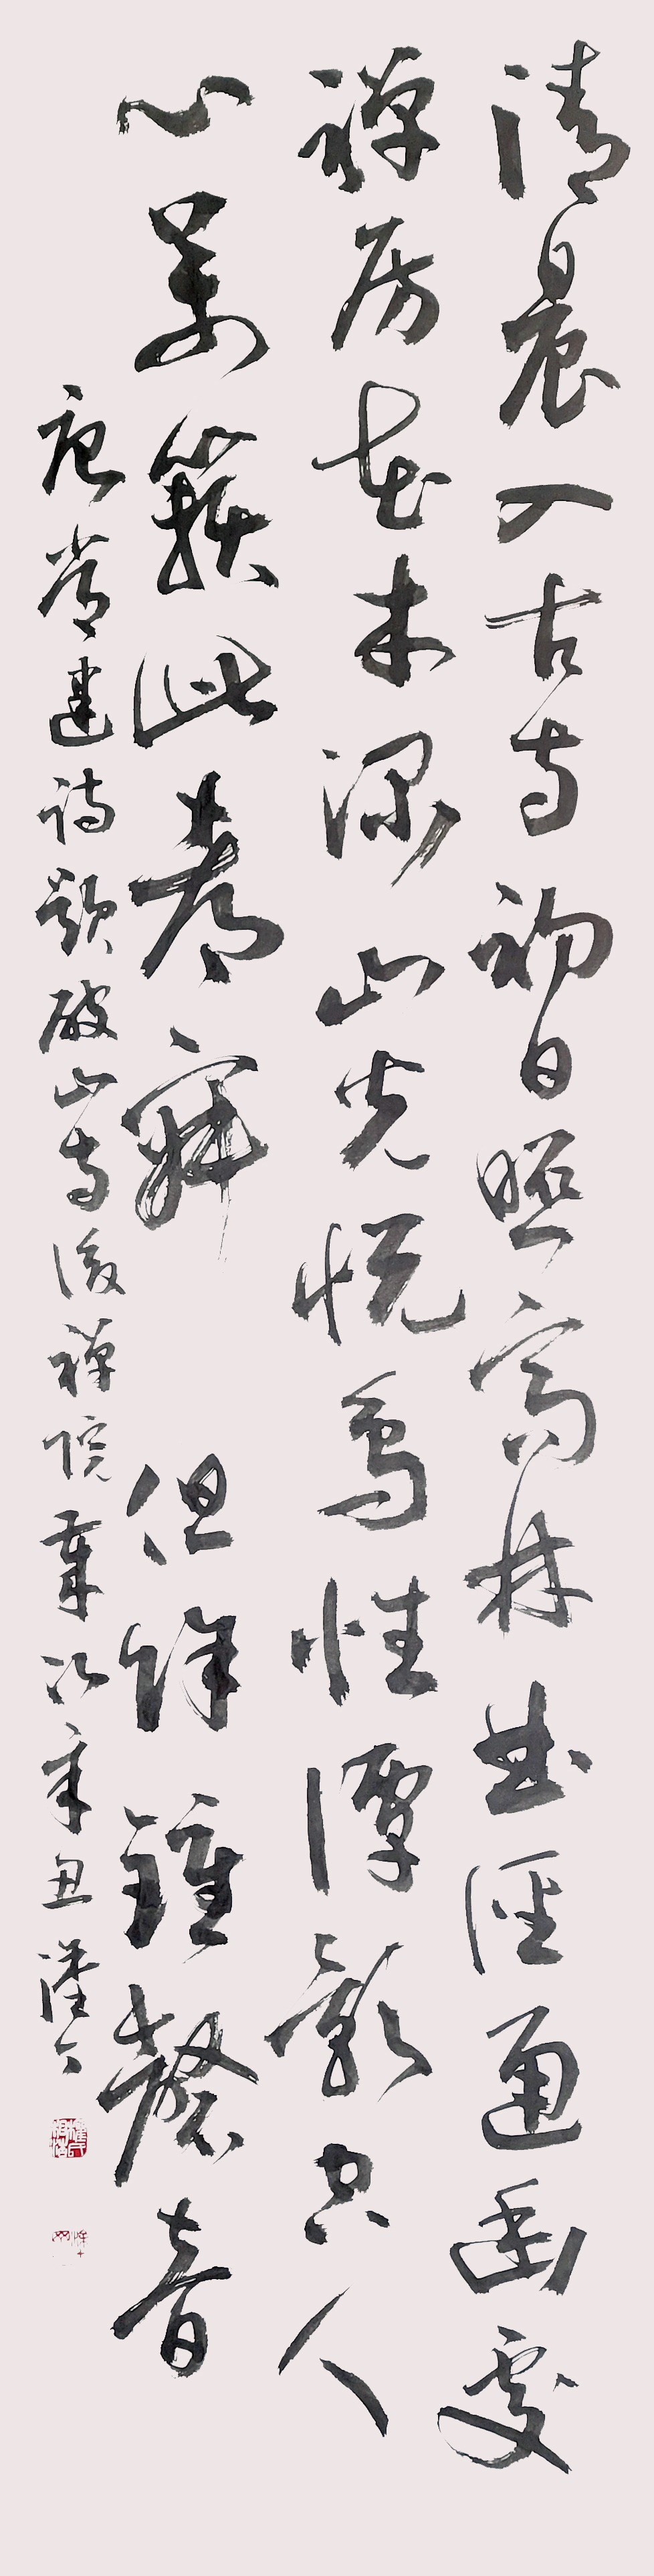 清晨入古寺初日照高林曲径通幽處
禅房花木深山光悦鳥性潭影空人
心萬籟此都寂但馀鐘磬音
唐常建诗題破山寺後禅院
辛丑